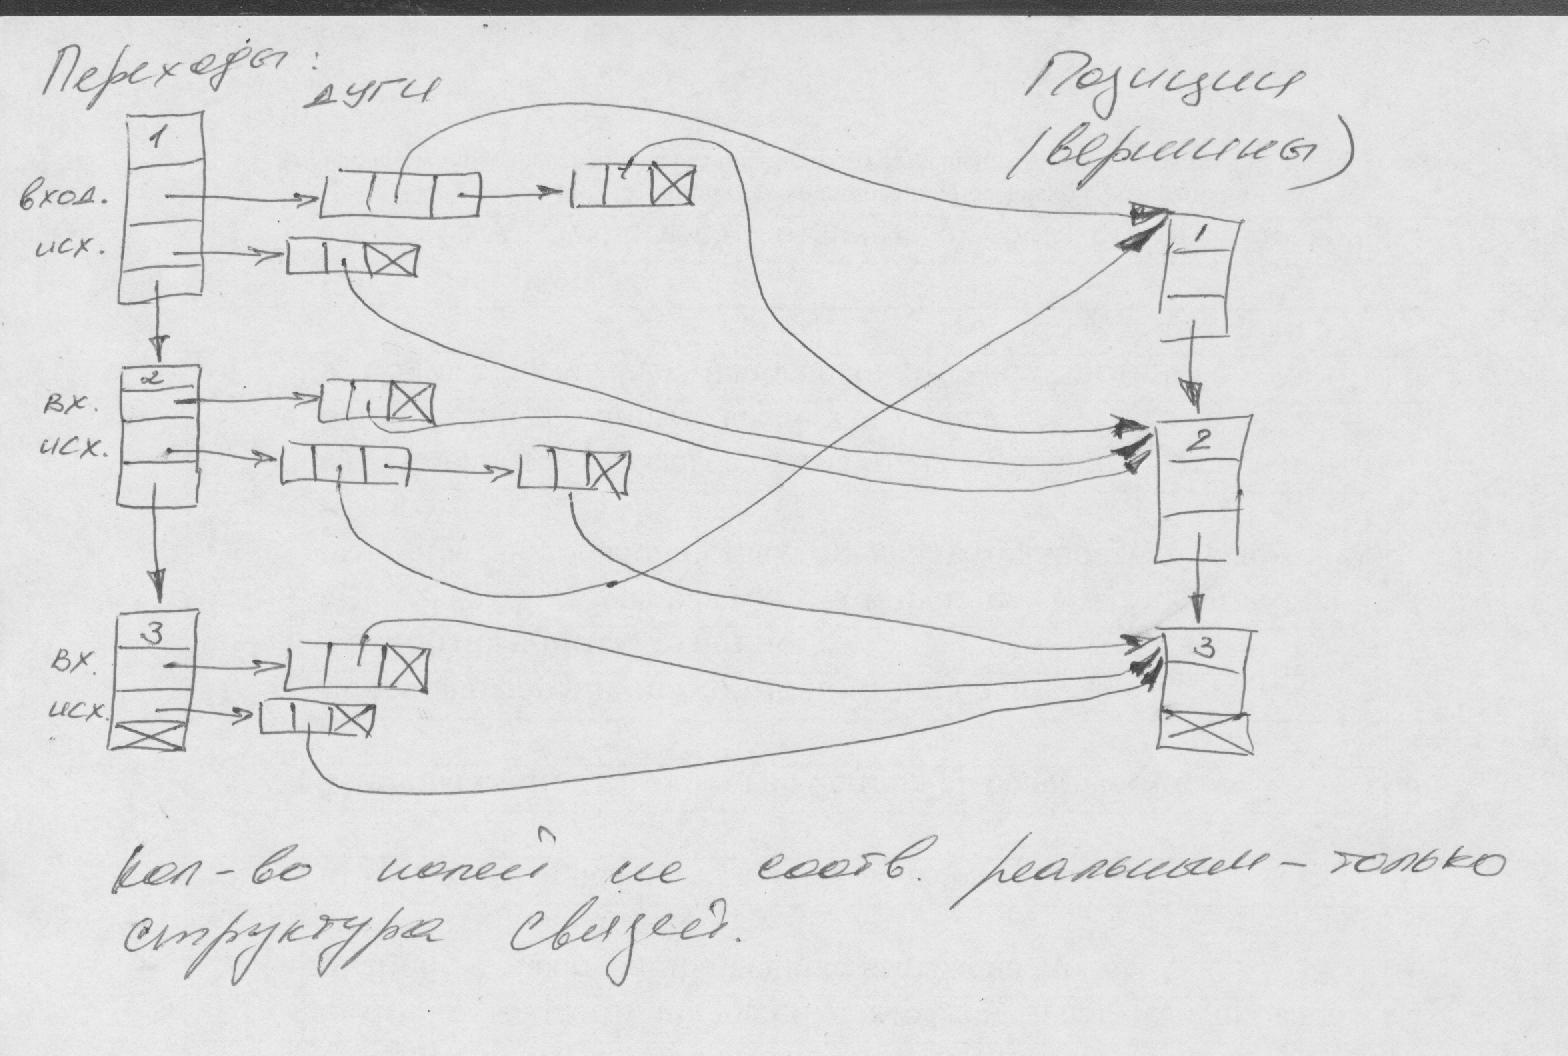 Переходы:
дуги
Позиции
(вершины)
1
вход.
исх.
1
2
вх.
исх.
2
3
вх.
исх.
3
Кол-во полей не соотв. реальным - только
структура связей.